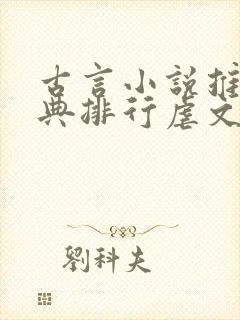 古言小説推
典排行虐文
劉科夫